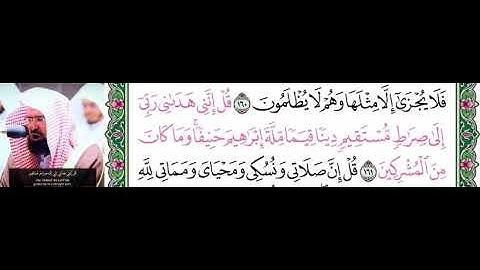 فَلَا يُجْزَىٰٓ إِلَّا مِثْلَهَا وَهُمْ لَا يُظْلَمُونَ ١٦٠ قُلْ إِنَّنِى هَدَىٰنِى رَبِّىٓ
إِلَىٰ صِرَٰطٍ مُّسْتَقِيمٍ دِينًا قِيَمًا مِّلَّةَ إِبْرَٰهِيمَ حَنِيفًا ۚ وَمَا كَانَ
مِنَ ٱلْمُشْرِكِينَ ١٦١ قُلْ إِنَّ صَلَاتِى وَنُسُكِى وَمَحْيَاىَ وَمَمَاتِى لِلَّهِ